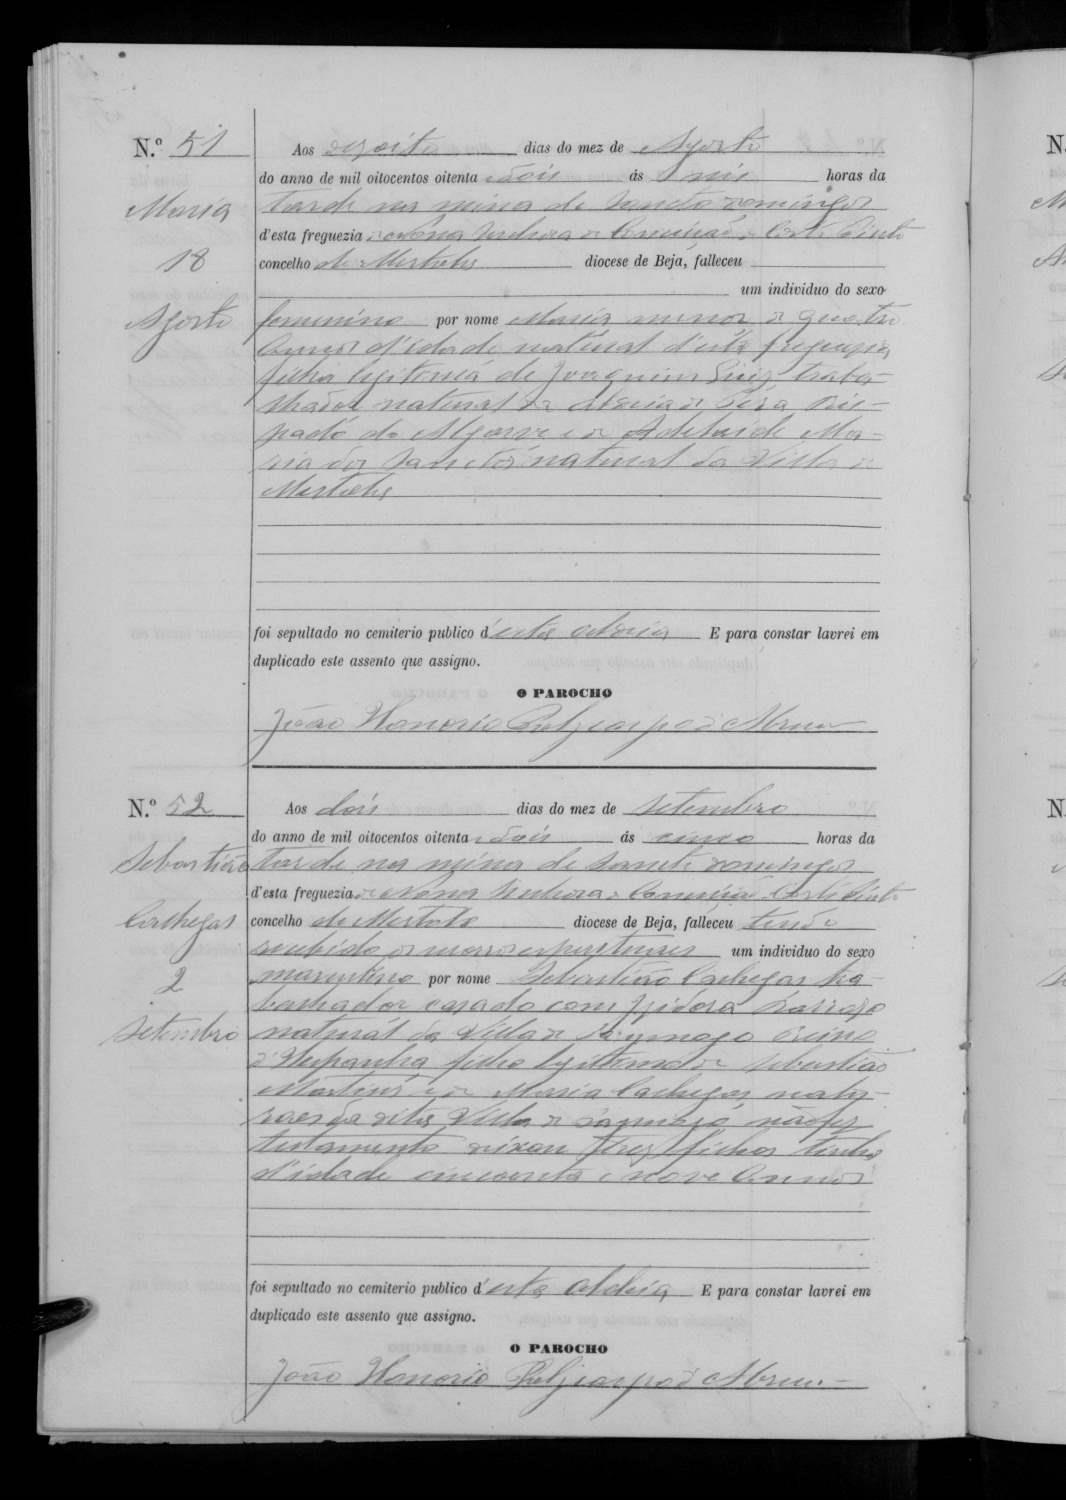 N.º 51
Maria
18
Agosto
Aos dezoito dias do mez de Agosto
do anno de mil oitocentos oitenta e dois ás seis horas da
tarde na mina de Sancto Domingos
d'esta freguezia de Nóssa Senhora da Conceição de Corte Pinto
concelho de Mertola diocese de Beja, falleceu
um individuo do sexo
feminino por nome Maria menor de quatro
annos d'idade natural d'esta freguezia
filha legitima de Joaquim Luiz traba-
lhador natural da aldeia de Pera Bis-
pado do Algarve e de Adelaide Ma-
ria dos Sanctos natural da Villa de
Mertola
foi sepultado no cemiterio publico d'esta aldeia E para constar lavrei em
duplicado este assento que assigno.
O PAROCHO
João Honorio d'Abreu
N.º 52
Sebastião
Cachegas
2
Setembro
Aos dois dias do mez de Setembro
do anno de mil oitocentos oitenta e dois ás cinco horas da
tarde na mina de Sancto Domingos
d'esta freguezia de Nossa Senhora da Conceição de Corte Pinto
concelho de Mertola diocese de Beja, falleceu tendo
recebido os um individuo do sexo
masculino por nome Sebastião Cachegas tra-
balhador casado com Izidora
natural da Villa de reino
d'Hespanha filho legitimo de Sebastião
Martins e de Maria Cachegas natu-
raes da dita Villa de não fez
testamento deixou trez filhos tinha
d'idade cincoenta e nove annos
foi sepultado no cemiterio publico d'esta aldeia E para constar lavrei em
duplicado este assento que assigno.
O PAROCHO
João Honorio d'Abreu